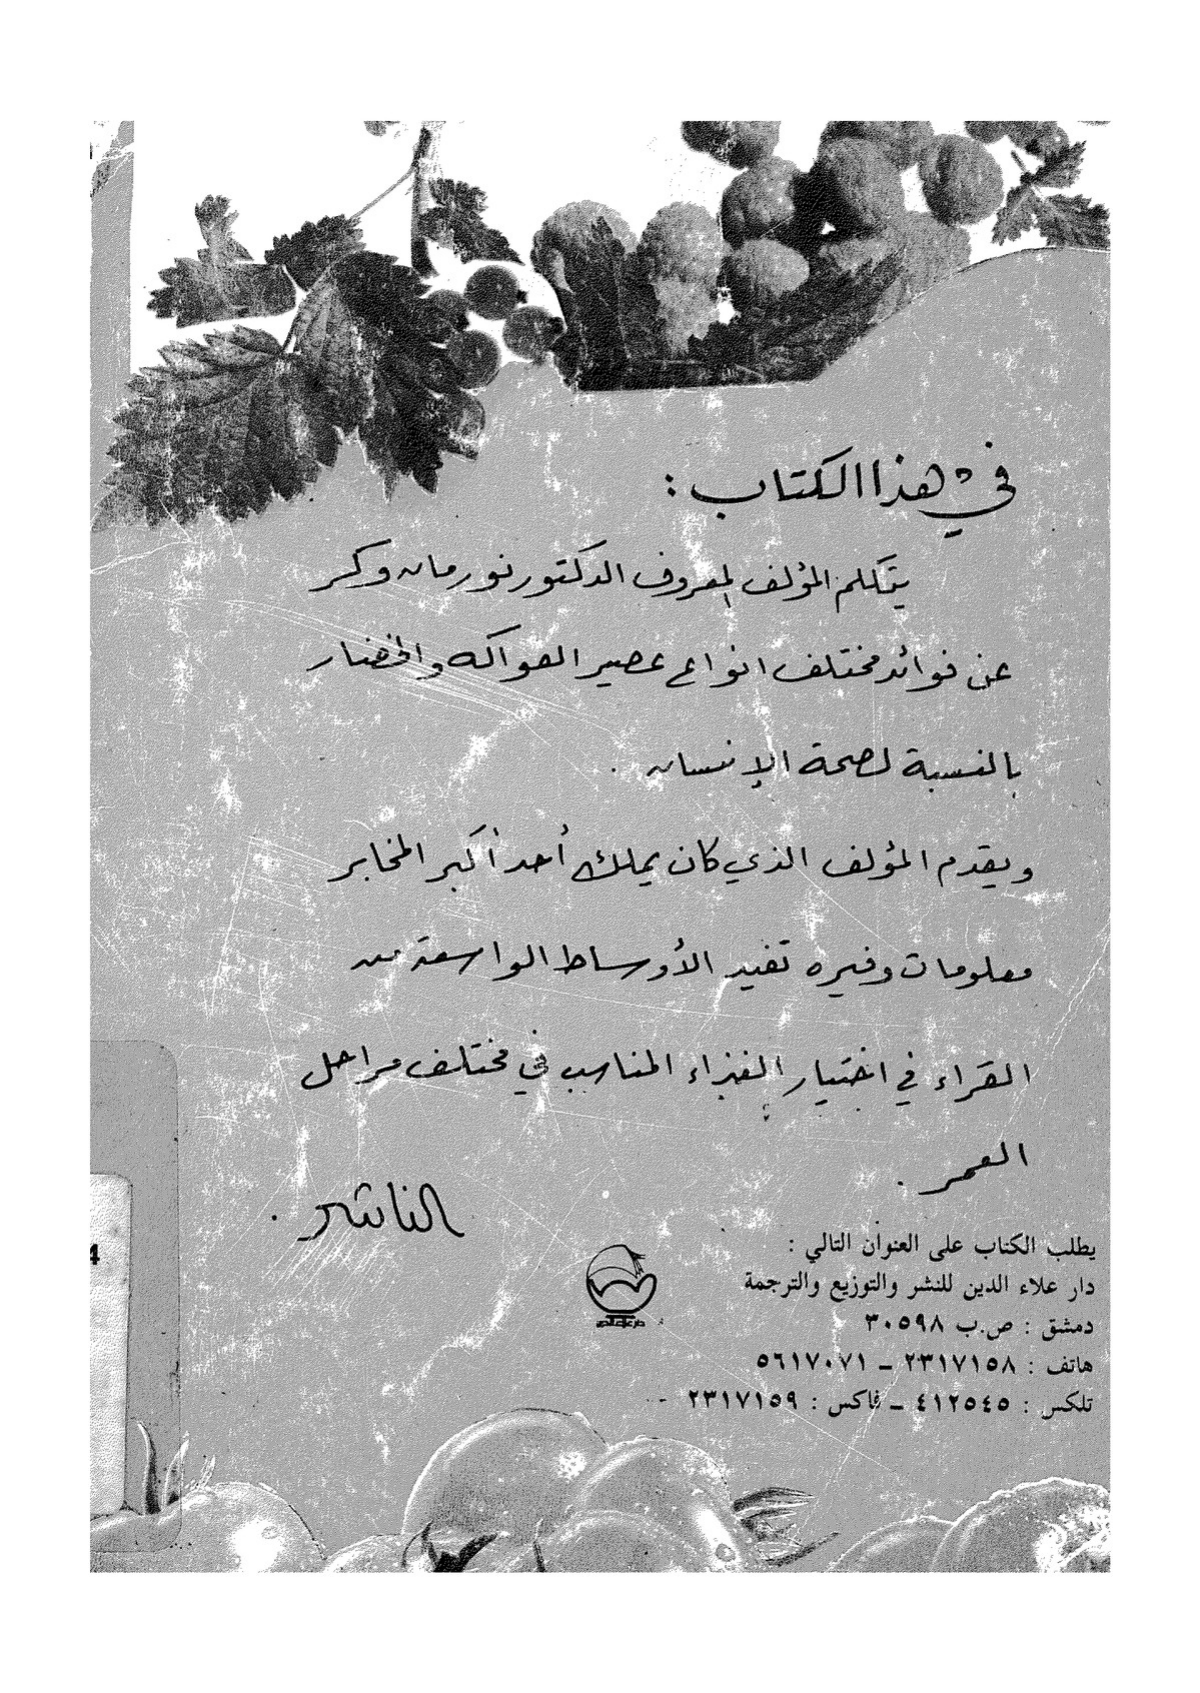 في هذا الكتاب :
يتكلم المؤلف المعروف الدكتور نورمان وكر
عن فوائد مختلف انواع عصير الفواكه والخضار
بالنسبة لصحة الإنسان .
ويقدم المؤلف الذي كان يملك أحد أكبر المخابر
معلومات وفيره تفيد الأوساط الواسعة من
القراء في اختيار الغذاء المناسب في مختلف مراحل
العمر .
الناشر .
يطلب الكتاب على العنوان التالي :
دار علاء الدين للنشر والتوزيع والترجمة
دمشق : ص.ب ٣٠٥٩٨
هاتف : ٢٣١٧١٥٨ ـ ٥٦١٧٠٧١
تلكس : ٤١٢٥٤٥ ـ فاكس : ٢٣١٧١٥٩
4